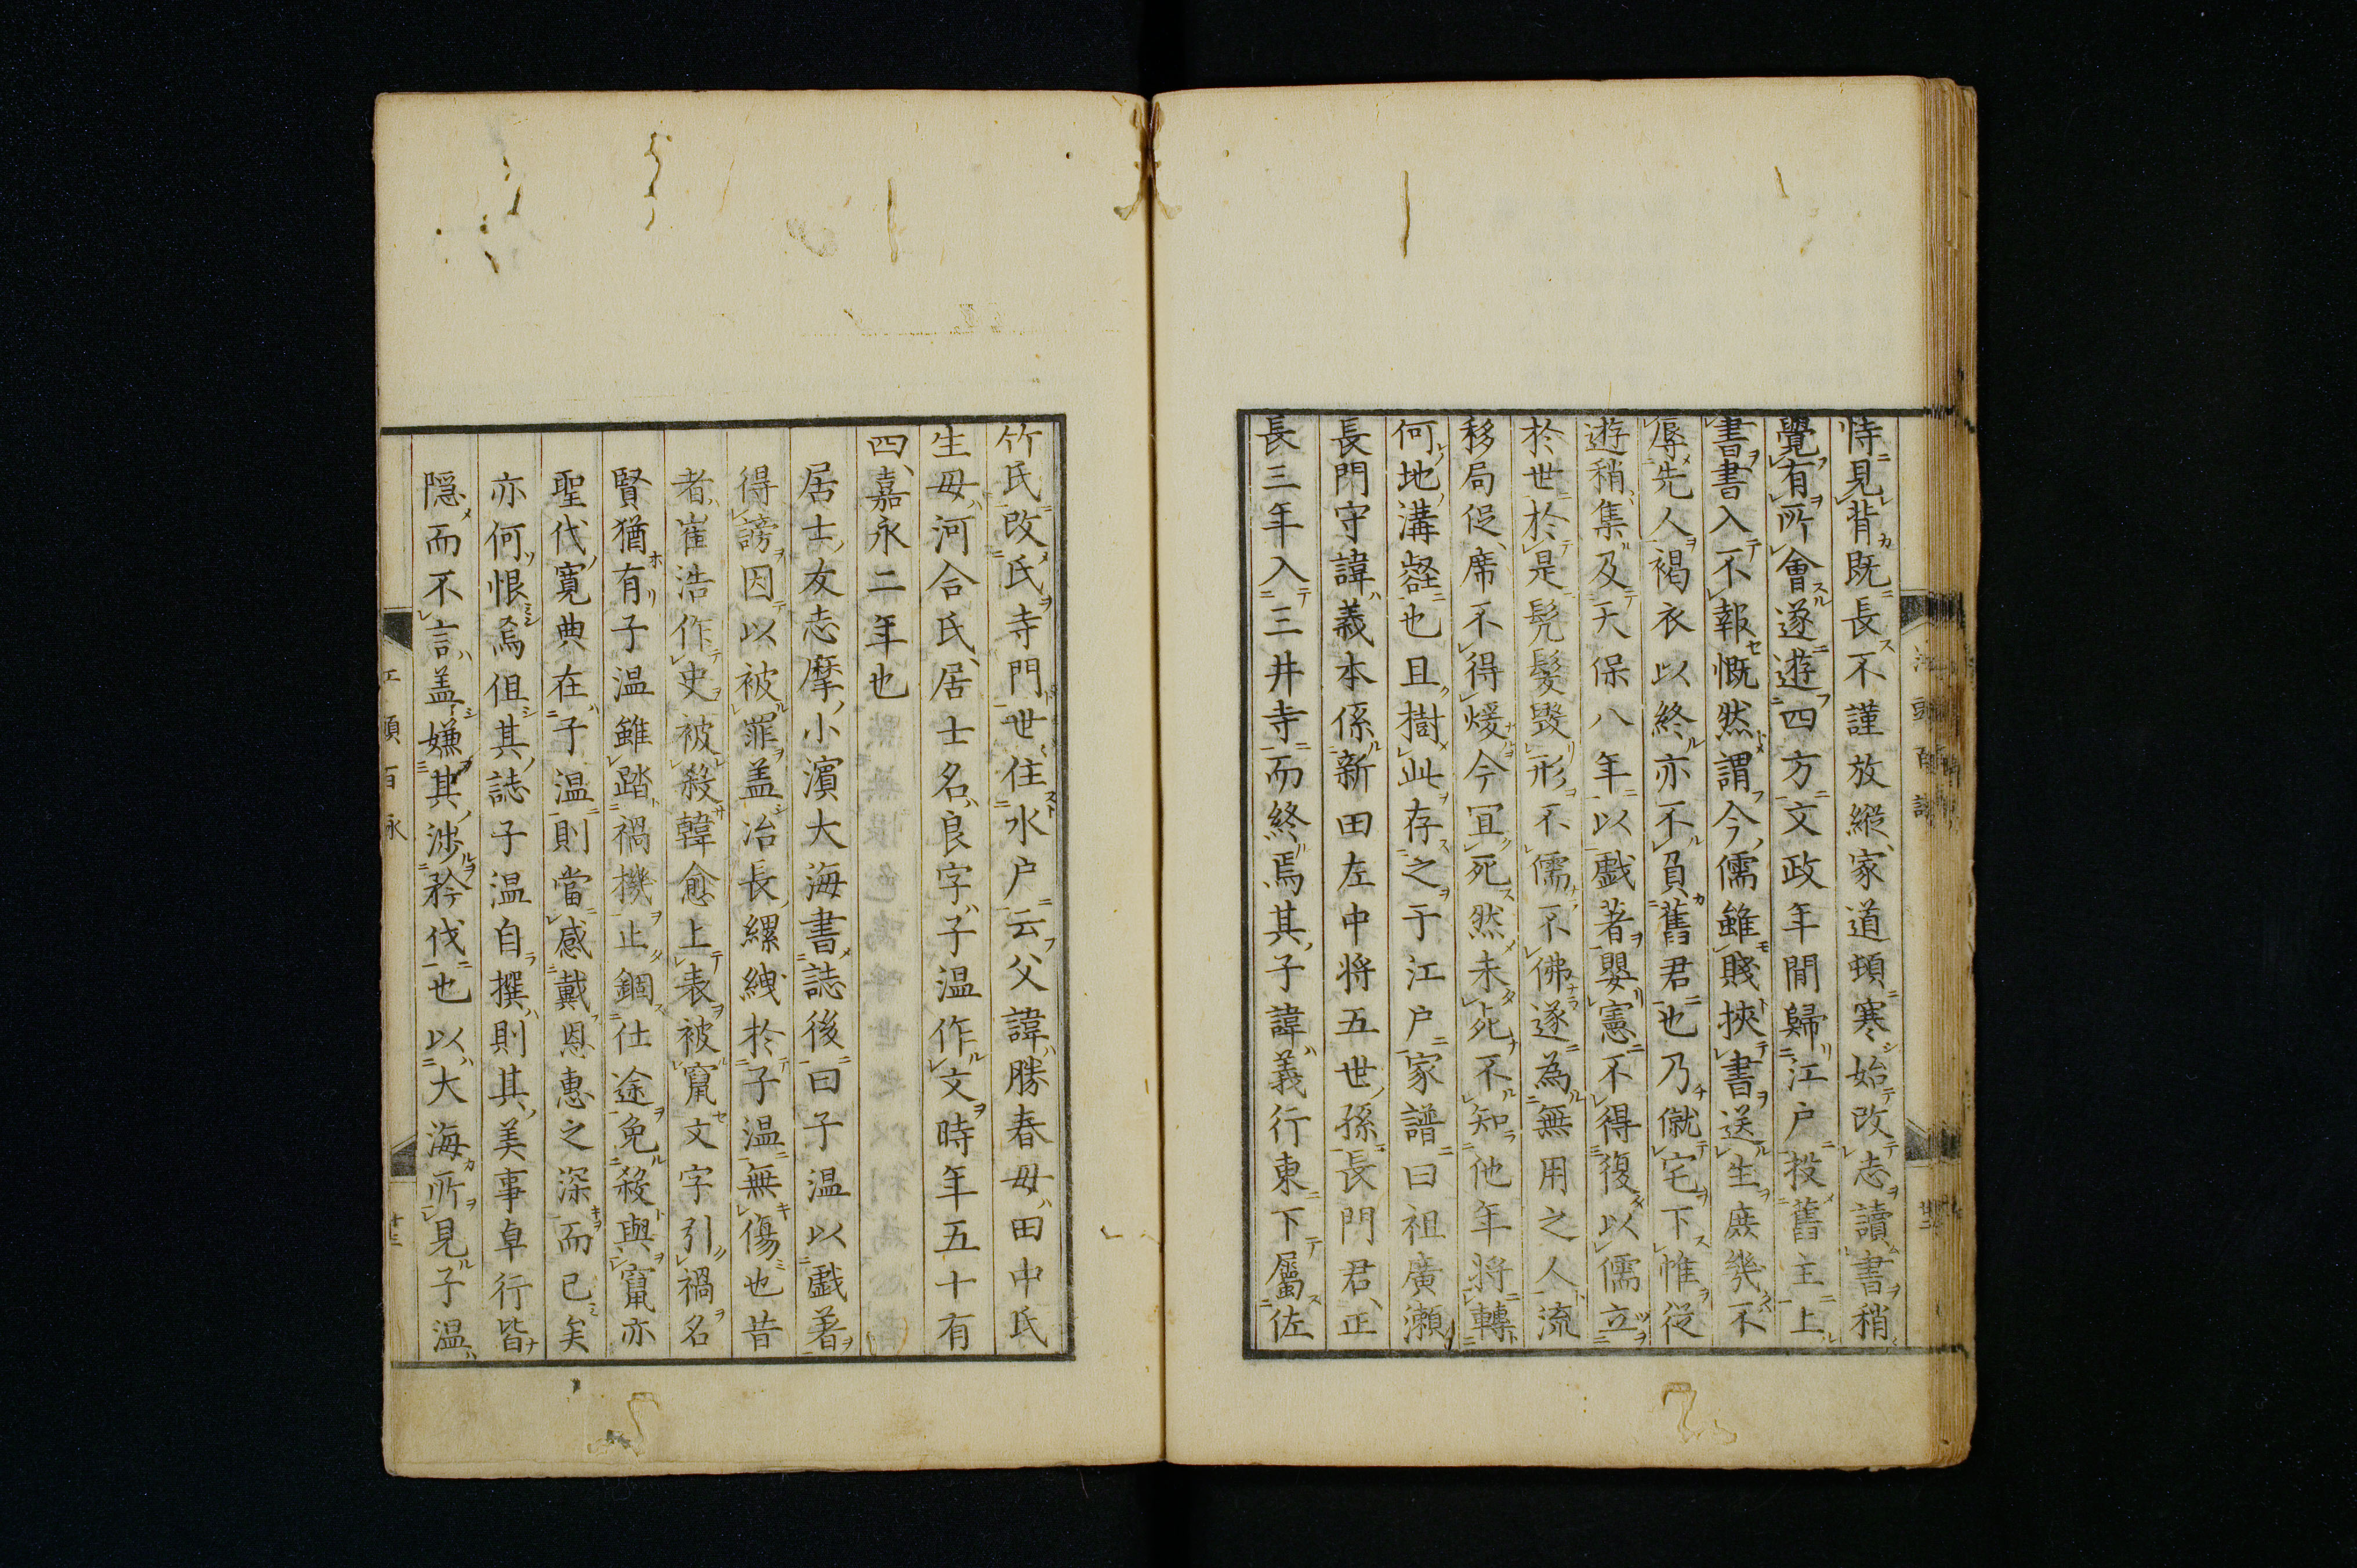 恃見背既長不謹放縱家道頓寒始改志讀書稍
覺有所會遂遊四方文政年間歸江戸投舊主上
書書入不報慨然謂今儒雖賤挾書送生庶幾不
辱先人褐衣以終亦不負舊君也乃僦宅下帷從
遊稍集及天保八年以戯著嬰憲不得復以儒立
於世於是髠髮毀形不儒不佛遂為無用之人流
移局促席不得煖今冝死然未死不知他年将轉
何地溝壑也且樹此存之于江戸家譜曰祖廣瀬
長門守諱義本係新田左中将五世孫長門君正
長三年入三井寺而終焉其子諱義行東下屬佐
竹氏改氏寺門世住水户云父諱勝春母田中氏
生母河合氏居士名良字子温作文時年五十有
四嘉永二年也
居士友志摩小濱大海書誌後曰子温以戯著
得謗因以被罪盖冶長縲絏於子温無傷也昔
者崔浩作史被殺韓愈上表被竄文字引禍名
賢猶有子温雖踏禍機止錮仕途免殺與竄亦
聖代寛典在子温則當感戴恩惠之深而已矣
亦何恨焉但其誌子温自撰則其美事卓行皆
隠而不言盖嫌其渉矜伐也以大海所見子温